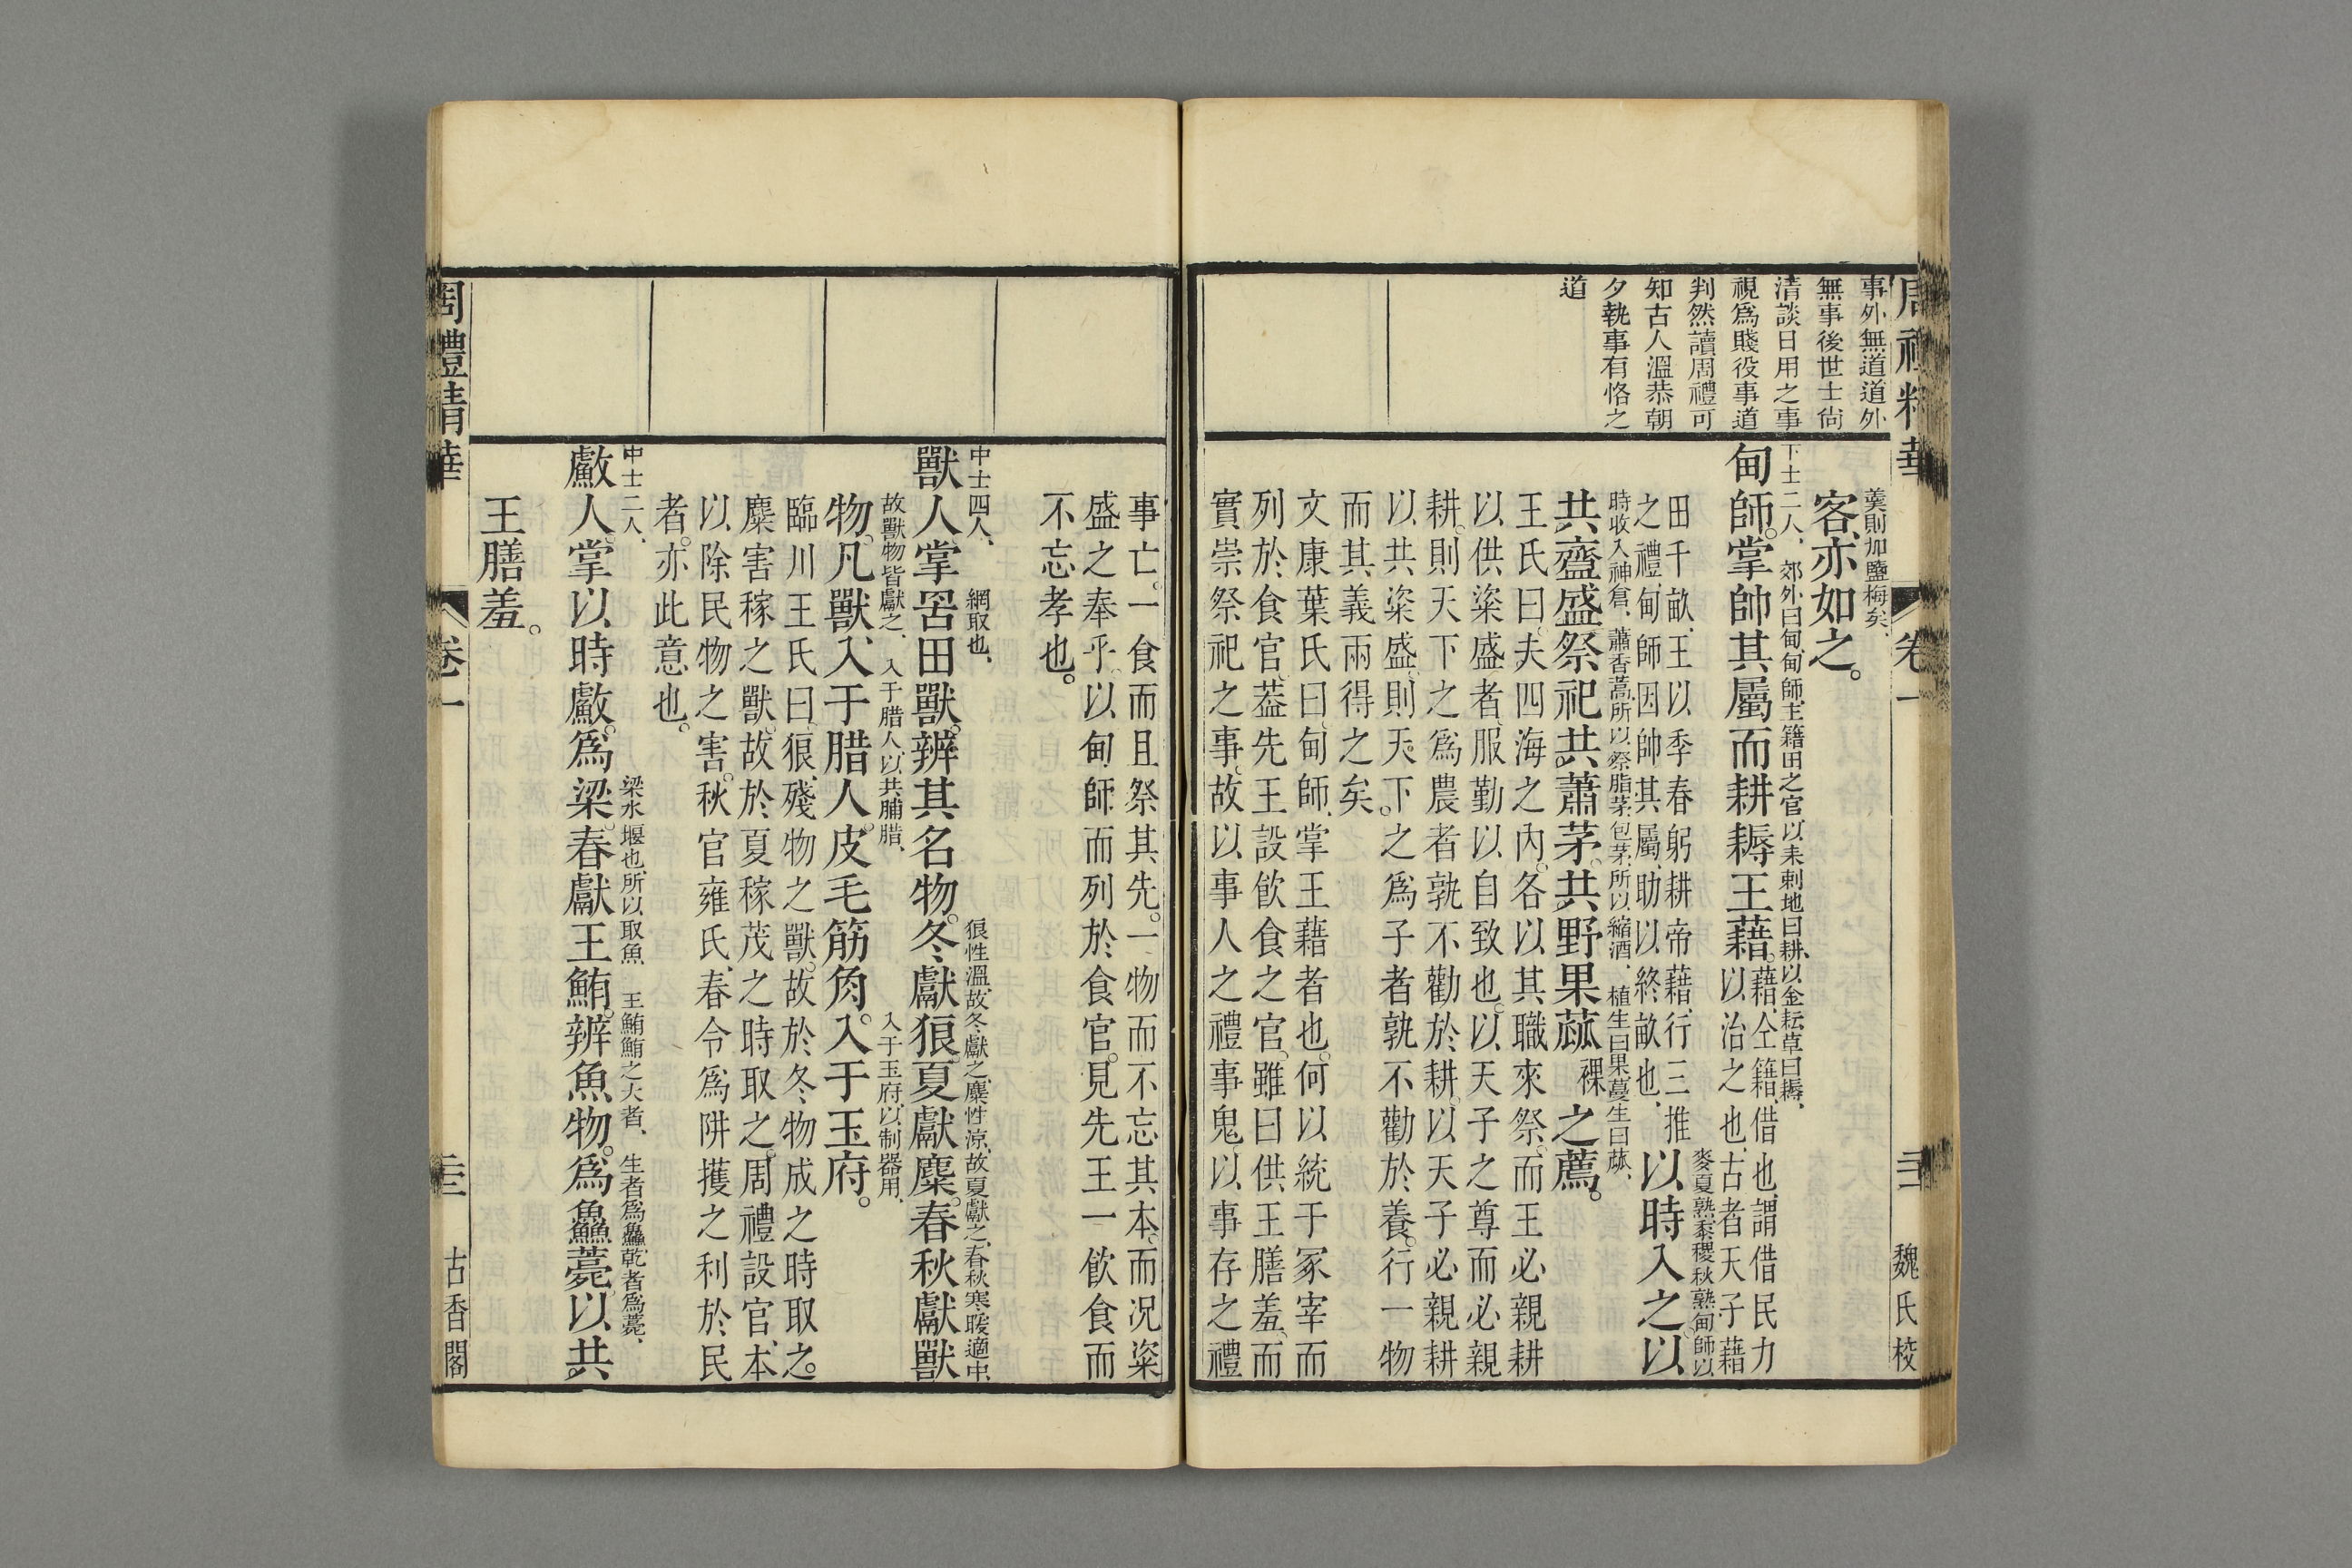 事外無道道外
無事後世士尙
清談日用之事
視爲賤役事道
判然讀周禮可
知古人溫恭朝
夕執事有恪之
道
羹則加鹽梅矣、
客、亦如之。
下士二人、郊外曰甸、甸師、主籍田之官、以耒刺地曰耕、以金耘草曰耨、
甸師。掌帥其屬而耕耨王藉。藉、仝籍、借也、謂借民力
以治之也、古者天子藉
田千畝、王以季春躬耕帝藉、行三推
之禮、甸師因帥其屬、助以終畝也、
麥夏熟黍稷秋熟甸師以
以時入之以
時收入神倉、蕭香蒿、所以祭脂、茅、包茅、所以縮酒、植生曰果、蔓生曰蓏、
共齍盛。祭祀共蕭茅。共野果蓏裸之薦。
王氏曰、夫四海之內。各以其職來祭。而王必親耕
以供粢盛者、服勤以自致也。以天子之尊而必親
耕。則天下之爲農者孰不勸於耕。以天子必親耕
以共粢盛。則天下。之爲子者孰不勸於養。行一物
而其義兩得之矣
文康葉氏曰、甸師、掌王藉者也。何以統于冢宰而
列於食官、葢先王設飮食之官。雖曰供王膳羞。而
實崇祭祀之事。故以事人之禮事鬼、以事存之禮
周禮精華
卷一
三三
魏氏校
事亡。一食而且祭其先。一物而不忘其本。而况粢
盛之奉乎。以甸師而列於食官。見先王一飮食而
不忘孝也。
中士四人、網取也、狼性溫、故冬獻之、麋性涼、故夏獻之、春秋寒暖適中、
獸人掌罟田獸。辨其名物。冬獻狼。夏獻麋。春秋獻獸
故獸物皆獻之、入于腊人、以共脯腊、入于玉府、以制器用、
物。凡獸、入于腊人。皮毛筋角。入于玉府。
臨川王氏曰、狼、殘物之獸。故於冬物成之時取之。
麋害稼之獸。故於夏稼茂之時取之。周禮設官、本
以除民物之害。秋官雍氏、春令爲阱擭之利於民
者。亦此意也。
中士二人、梁水堰也、所以取魚、王鮪鮪之大者、生者爲鱻、乾者爲薧、
䱷人。掌以時䱷。爲梁。春獻王鮪。辨魚物。爲鱻薧。以共
王膳羞。
周禮精華
卷一
三三
古香閣